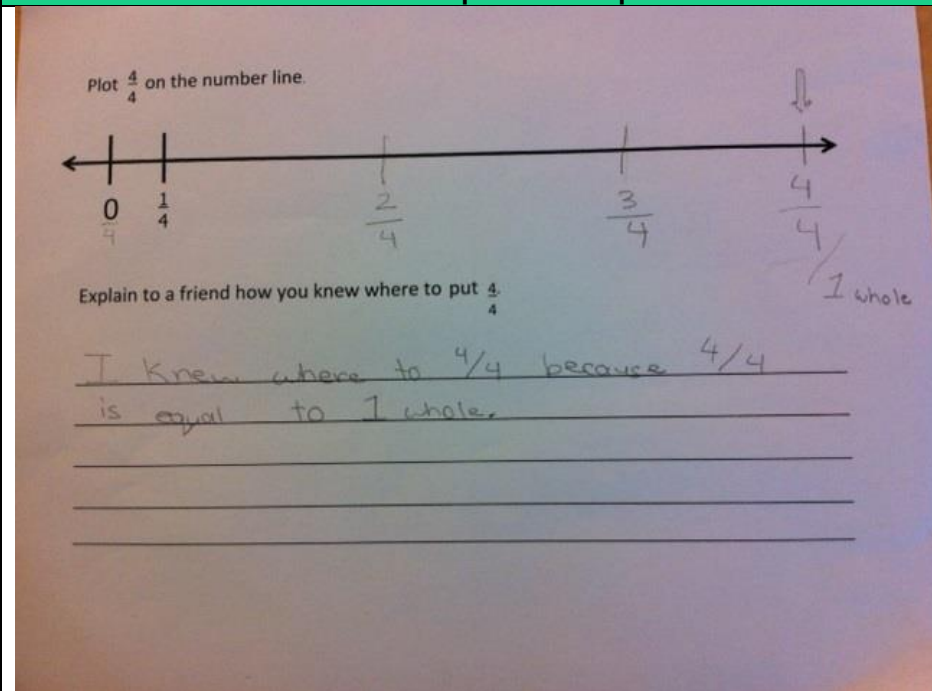 Plot 4/4 on the number line.
0/4 1/4 2/4 3/4 4/4 / 1 whole
Explain to a friend how you knew where to put 4/4.
I knew where to 4/4 because 4/4
is equal to 1 whole.